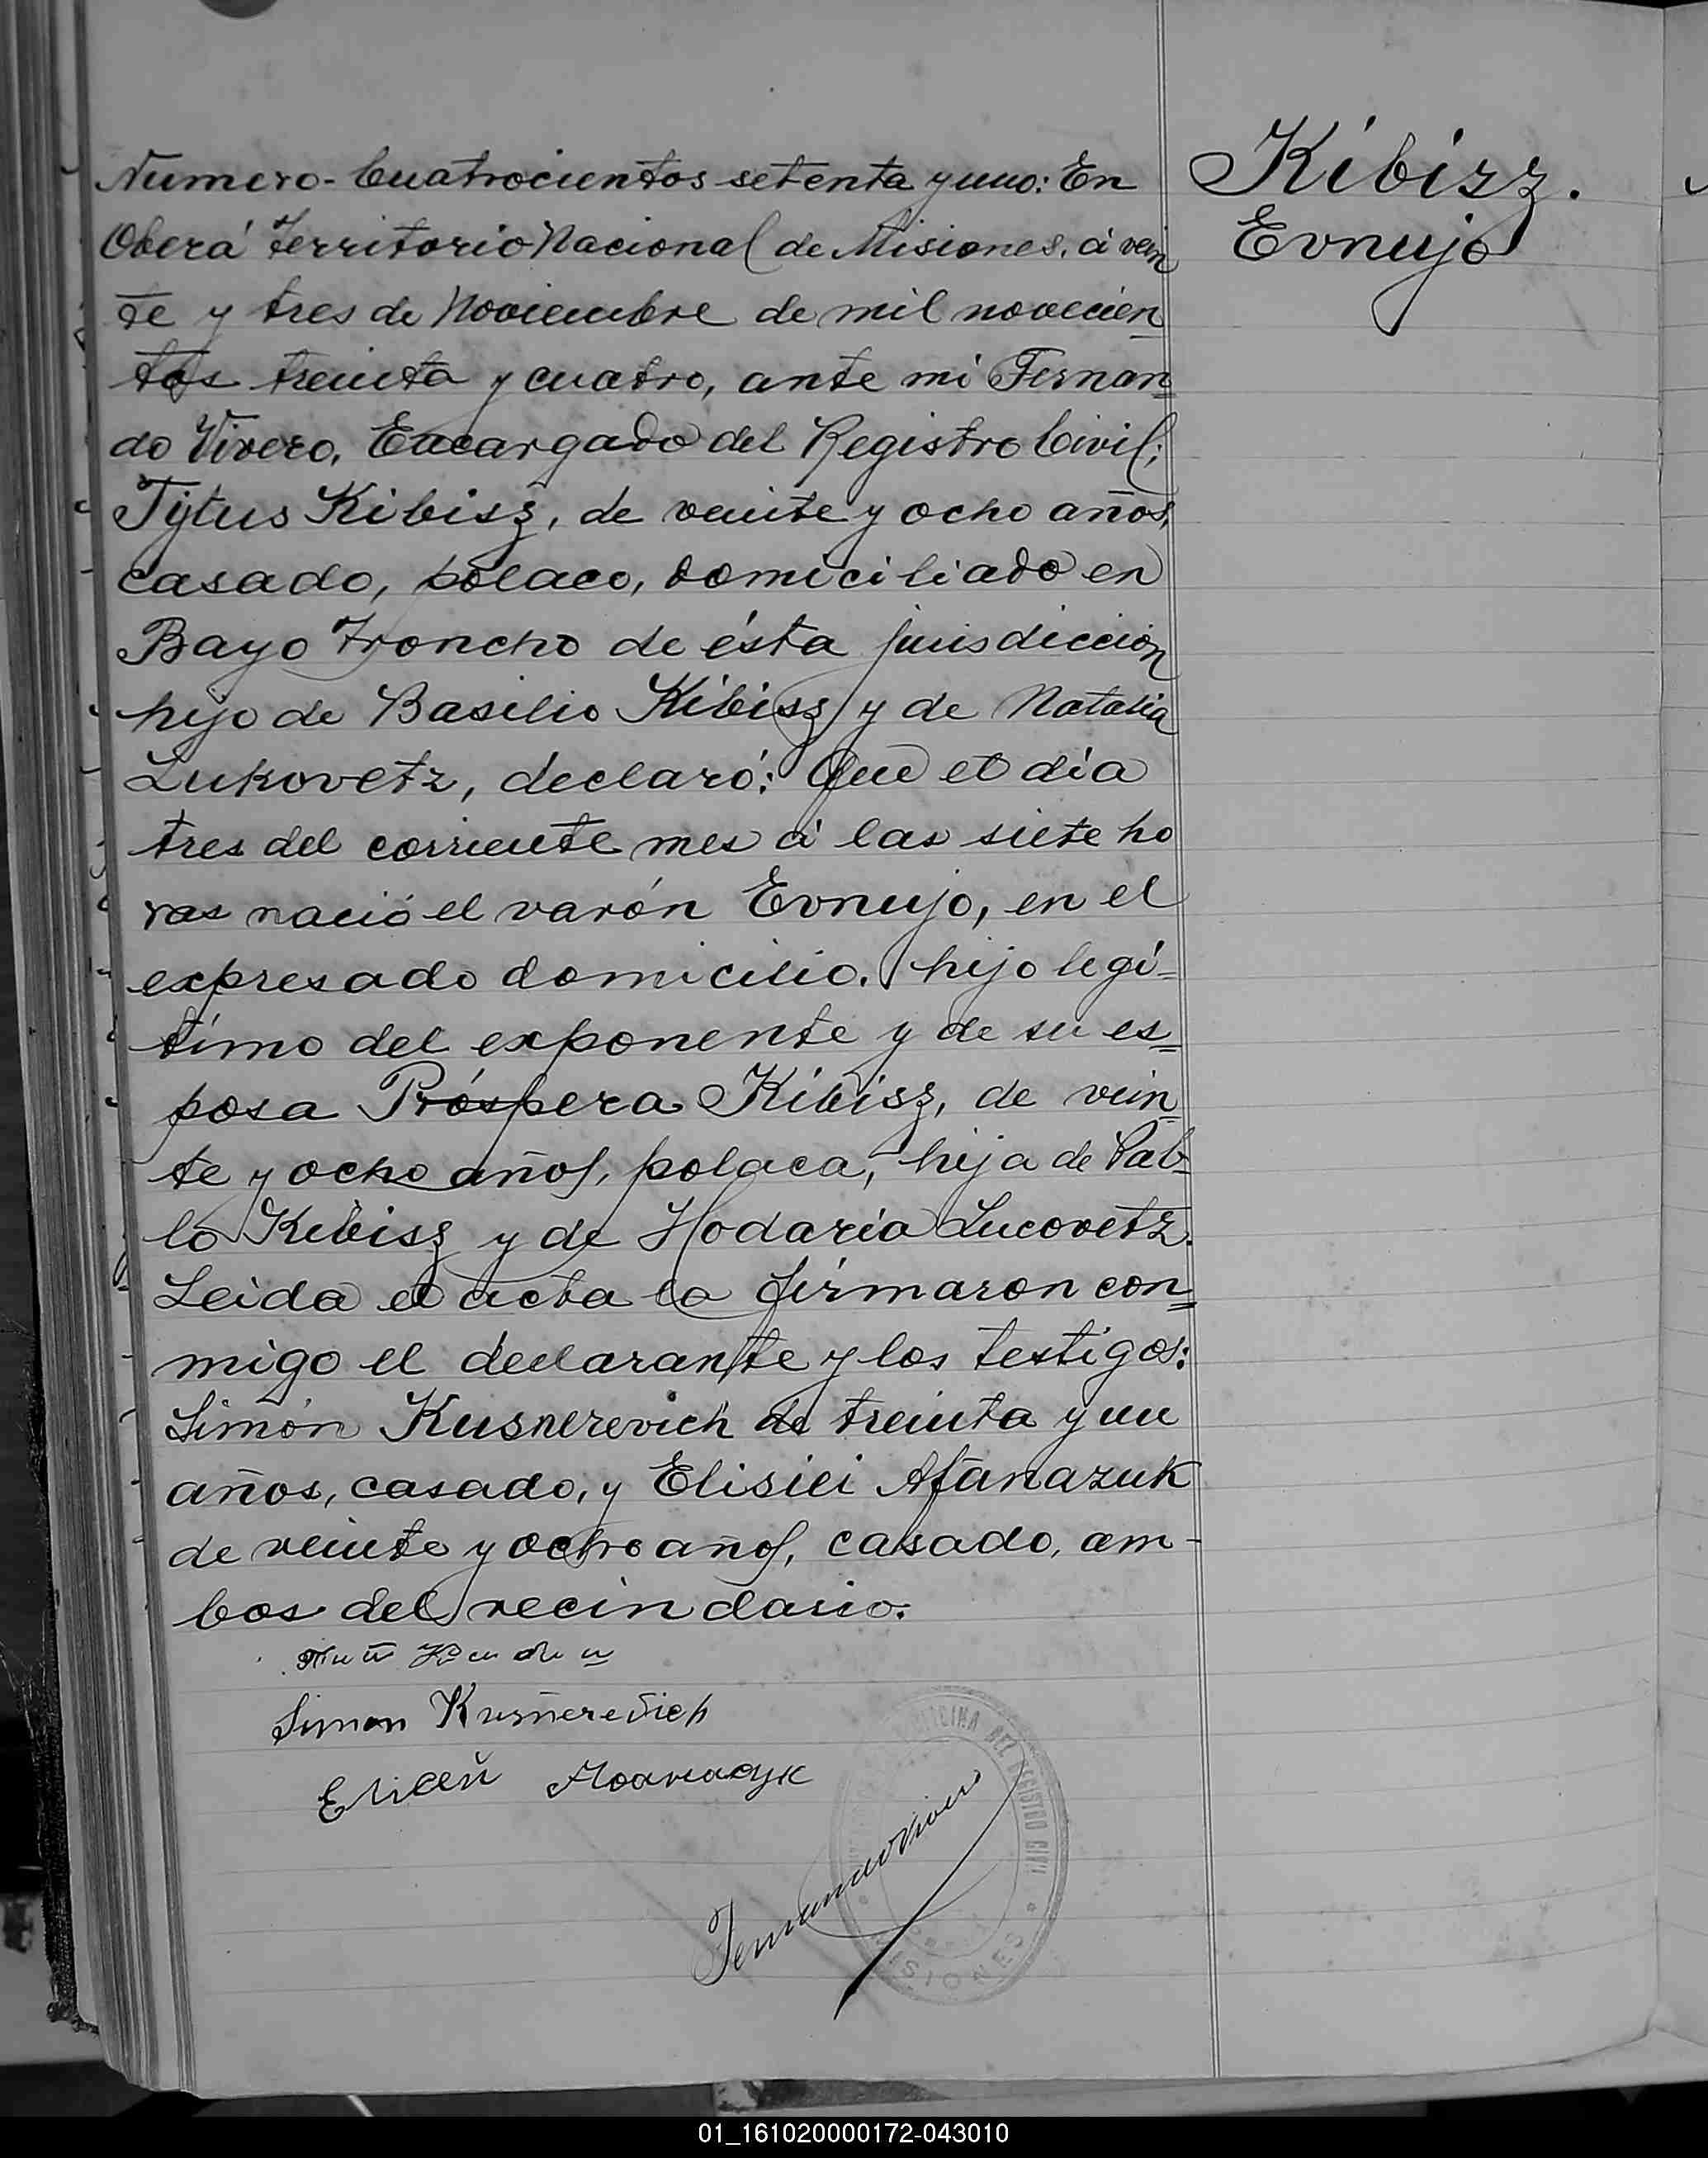 Numero- Cuatrocientos setenta y uno: En
Oberá Territorio Nacional de Misiones, á vein
te y tres de Noviembre de mil novecien
tos treinta y cuatro, ante mi Fernan
do Vivero, Encargado del Registro Civil;
Tytus Kibisz, de veinte y ocho años,
casado, polaco, domiciliado en
Bayo Troncho de ésta jurisdiccion
hijo de Basilio Kibisz y de Natalia
Lukovetz, declaró: Que el día
tres del corriente mes á las siete ho
ras nació el varón Evnujo, en el
expresado domicilio. hijo legí-
timo del exponente y de su es
posa Próspera Kibisz, de vein
te y ocho años, polaca, hija de Pab-
lo Kibisz y de Hodaria Lucovetz.
Leida el acta la firmaron con
migo el declarante y los testigos:
Simón Kusnerevich de treinta y un
años, casado, y Elisiei Afanazuk
de veinte y ocho años, casado, am-
bos del vecindario.
Simon Kusnerevich
OFICINA DEL REGISTRO CIVIL
MISIONES
Kibisz.
Evnujo
01_161020000172-043010